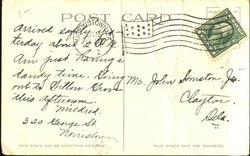 POST CARD
Arrived safely
terday about 2 P.M.
Am just having a
dandy time. Going
out to
this afternoon.
Mildred.
320 George St.
Norristown
Mr. John Jr.
Clayton
Del.
THIS SPACE MAY BE USED FOR MESSAGE
THIS SPACE FOR ADDRESS ONLY